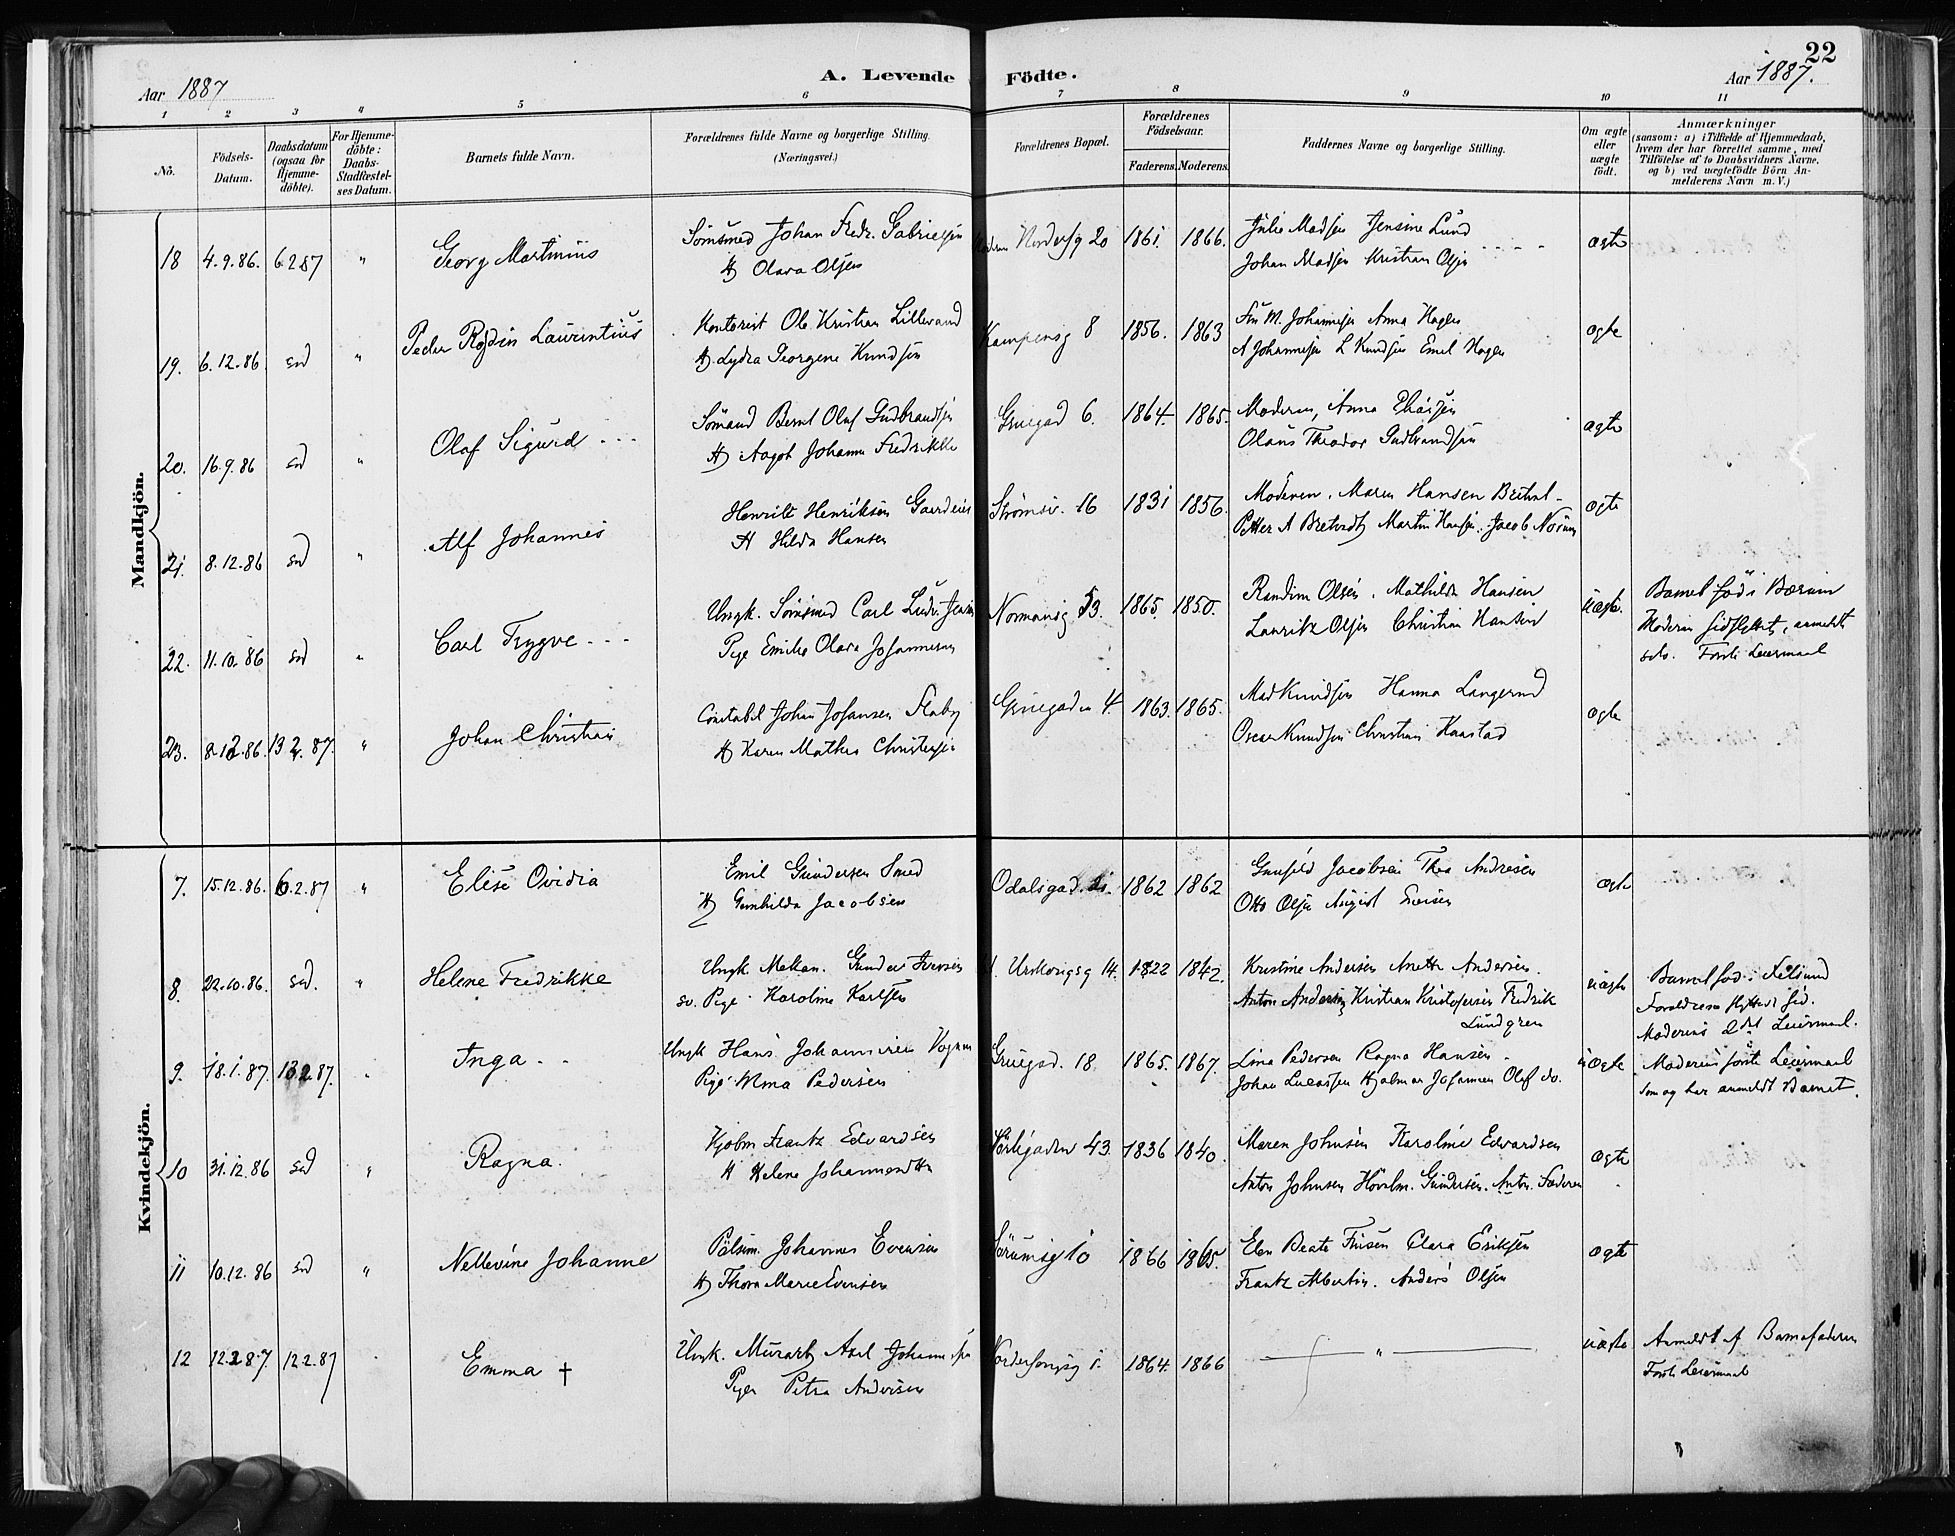 22
Aar 1887
A. Levende Födte.
Aar 1887.
1 2 3 4 5 6 7 8 9 10 11
No.
Födsels-Datum.
Daabsdatum (ogsaa for Hjemme-döbte).
For Hjemme-döbte: Daabs-Stadfæstel-ses Datum.
Barnets fulde Navn.
Forældrenes fulde Navne og borgerlige Stilling. (Næringsvei.)
Forældrenes Bopæl.
Forældrenes Födselsaar.
Faderens. Moderens.
Faddernes Navne og borgerlige Stilling.
Om ægte eller uægte födt.
Anmærkninger
(saasom: a) i Tilfælde af Hjemmedaab, hvem der har forrettet samme, med Tilföielse af to Daabsvidners Navne, og b) ved uægtefödte Börn An-melderens Navn m. V.)
Mandkjön.
18 4.9.86. 6.2.87 " Georg Martinius
Johan Fredr. Gabrielsen
H Olava Olsen
20 1861. 1866.
Julie Madsen Jensine Lund
Johan Madsen Kristian Olsen
ægte
19. 6.12.86 sd " Peder Laurentius
Kontorist Ole Kristian Lillevand
H Lydia Georgene Knudsen
Kampensg 8 1856. 1863
M. Johannesen Anna Hagen
A Johannesen L Knudsen Emil Hagen
ægte
20. 16.9.86 sd " Olaf Sigurd
Sömand Bernt Olaf Gudbrandsen
H Aagot Johanne Fredrikke
Gruegad 6. 1864. 1865.
Moderen, Anna Eliassen
Olaus Theodor Gudbrandsen
ægte
21. 8.12.86 sd " Alf Johannes
Henrik Henriksen
H Hilda Hansen
Strömsv. 16 1831 1856.
Moderen. Maren Hansen
Petter A Martin Hansen. Jacob
ægte
22. 11.10.86 sd " Carl Trygve
Ungk. Carl Ludv. Jensen
Pige Emilie Olava Johannesen
Normansg 53. 1865. 1850.
Randine Olsen. Mathilde Hansen
Lauritz Olsen Christian Hansen
uægte.
Barnet föd i Bærum
Moderen anmeldt
selv. Förste Leiermaal
23. 8.12.86. 13.2.87. " Johan Christian
Constabel Johan Johansen
H Karen Mathea Christensen
Gruegaden 4. 1863. 1865.
Knudsen Hanna Langerud
Oscar Knudsen Christian Kaastad
ægte
Kvindekjön.
7. 15.12.86. 6.2.87 " Elise Ovidia
Emil Gundersen Smed
H Gunhilda Jacobsen
Odalsgad. 1862 1862
Jacobsen Thea Andresen
Otto Olsen August
ægte
8. 22.10.86. sd. " Helene Fredrikke
Ungk Gunder Iversen
sv. Pige Karoline Karlsen
14. 1822 1842.
Kristine Andersen Anette Andersen.
Anton Andersen Kristian Kristofersen Fredrik Lundgren
uægte
Barnet föd i
Forældrene flyttet hid.
Moderens 2det Leiermaal.
9. 18.1.87. 13.2.87. Inga
Ungk Hans Johannesen
Pige Pedersen
Gruegad. 18 1865. 1867.
Lina Pedersen Ragna Hansen
Johan Hjalmar Johannesen Olaf do.
uægte
Moderens förste Leiermaal
som og har anmeldt Barnet.
10 31.12.86 sd " Ragna.
Frantz Edvardsen
H Helene
Sörligaden 43. 1836 1840.
Maren Johnsen Karoline Edvardsen
Anton Johnsen Gundersen. Faderen
ægte
11 10.12.86 sd " Nellevine Johanne
Johannes Evensen
H Thora Marie Evensen
Sörumsg 10 1866 1865.
Elen Beate Clara Eriksen
Frantz Albertin. Anders Olsen
ægte
12 12.2.87 12.2.87 Emma †
Ungk. Murarb. Johannesen
Pige Petra Andersen
1. 1864. 1866
"
uægte
Anmeldt af Barnefaderen
Förste Leiermaal